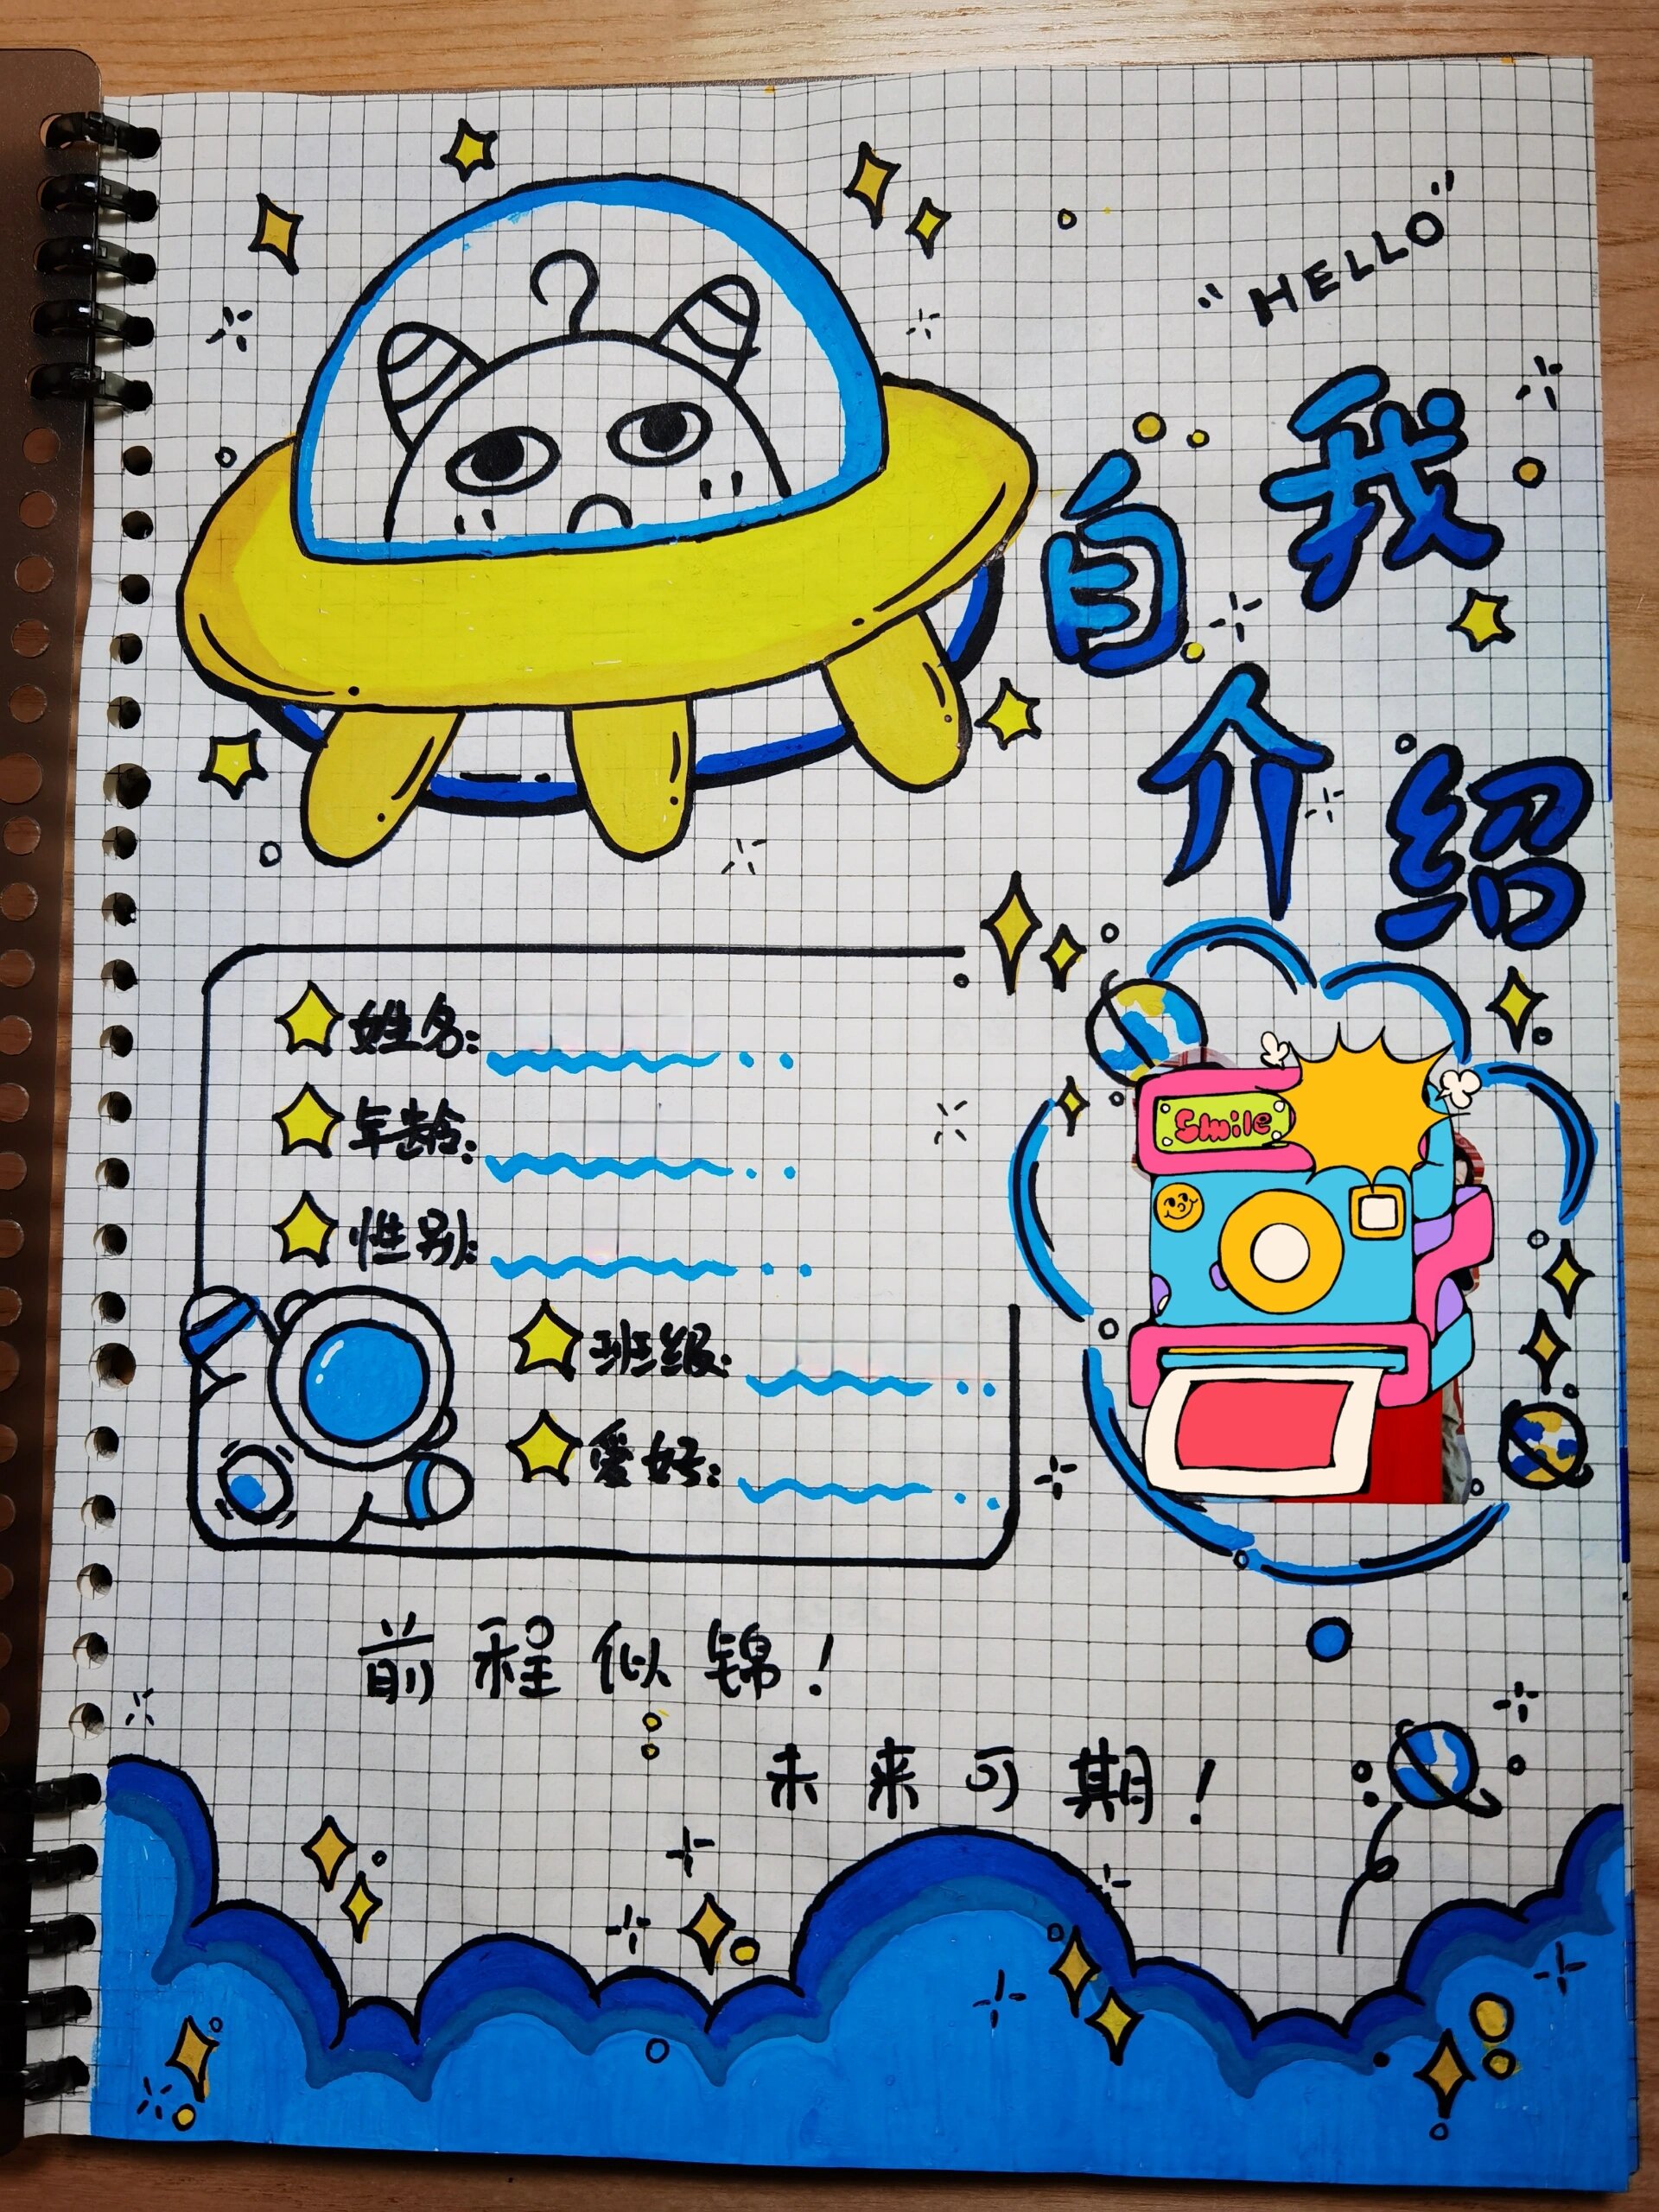 "HELLO"
自我
介绍
姓名:
年龄:
性别:
班级:
爱好:
Smile
前程似锦!
未来可期!